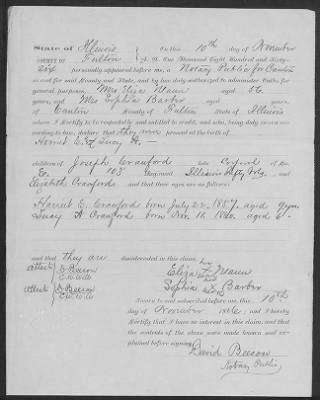 State of Illinois On this 10th day of November
COUNTY OF Fulton A. D. One Thousand Eight Hundred and Sixty-
six personally appeared before me, a Notary Public for Canton
in and for said County and State, and by law duly authorized to administer Oaths for
general purposes, Mrs Eliza Maun aged 56
years, and Mrs Sophia Barbor aged
of Canton County of Fulton State of Illinois
whom I Certify to be respectable and entitled to credit, and who, being duly sworn ac-
cording to law, declare that they were present at the birth of
Harriet E. & Lucy A.
children of Joseph Crawford late Corporal of Co.
E. 103 Regiment Illinois Infty Vols. &
Elizabeth Crawford and that their ages are as follows:
Harriet E. Crawford born July 22, 1857. aged 9 yrs
Lucy A Crawford born Nov. 16 1860. aged 6
and that they are disinterested in this claim.
attest D. Beeson Eliza X Maun
C. W. Wills
attest D. Beeson Sophia X Barbor
C. W. Wills
Sworn to and subscribed before me, this 10th
day of November 1866; and I hereby
Certify that I have no interest in this claim, and that
the contents of the above were made known and ex-
plained before signing.
David Beeson
Notary Public